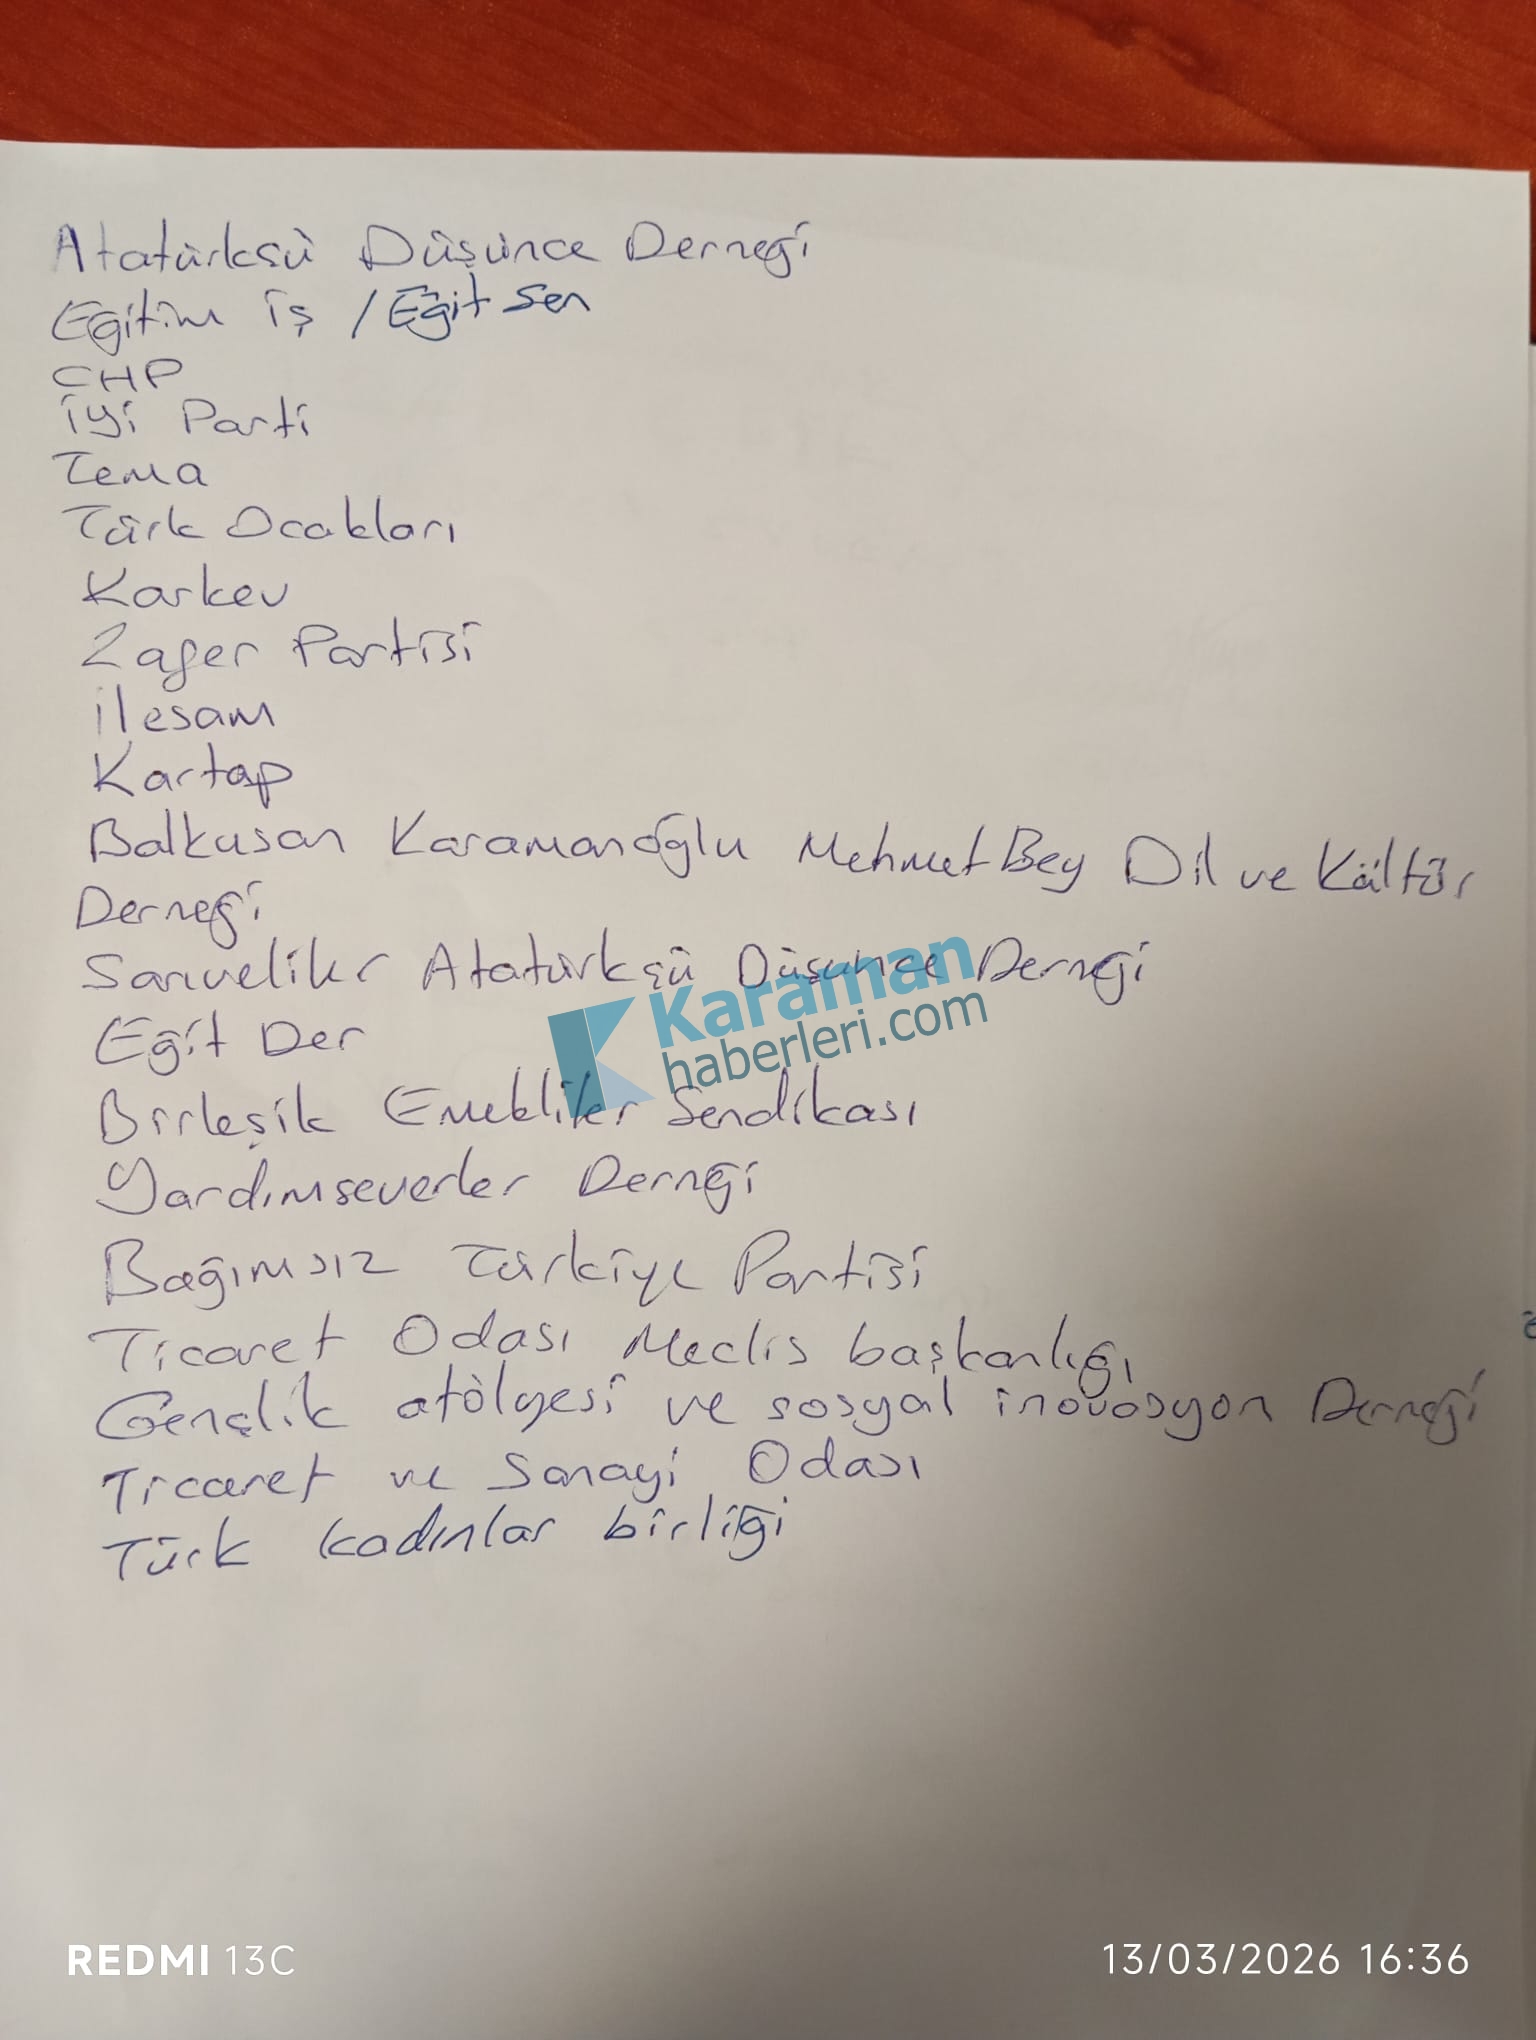 Atatürkçü Düşünce Derneği
Eğitim iş / Eğit Sen
CHP
iyi Parti
Tema
Türk Ocakları
Karkev
Zafer Partisi
ilesam
Kartap
Balkusan Karamanoğlu Mehmet Bey Dil ve Kültür
Derneği
Sarıveliler Atatürkçü Düşünce Derneği
Karaman
haberleri.com
Eğit Der
Birleşik Emekliler Sendikası
Yardımseverler Derneği
Bağımsız Türkiye Partisi
Ticaret Odası Meclis başkanlığı
Gençlik atölyesi ve sosyal inovasyon Derneği
Ticaret ve Sanayi Odası
Türk kadınlar birliği
REDMI 13C
13/03/2026 16:36